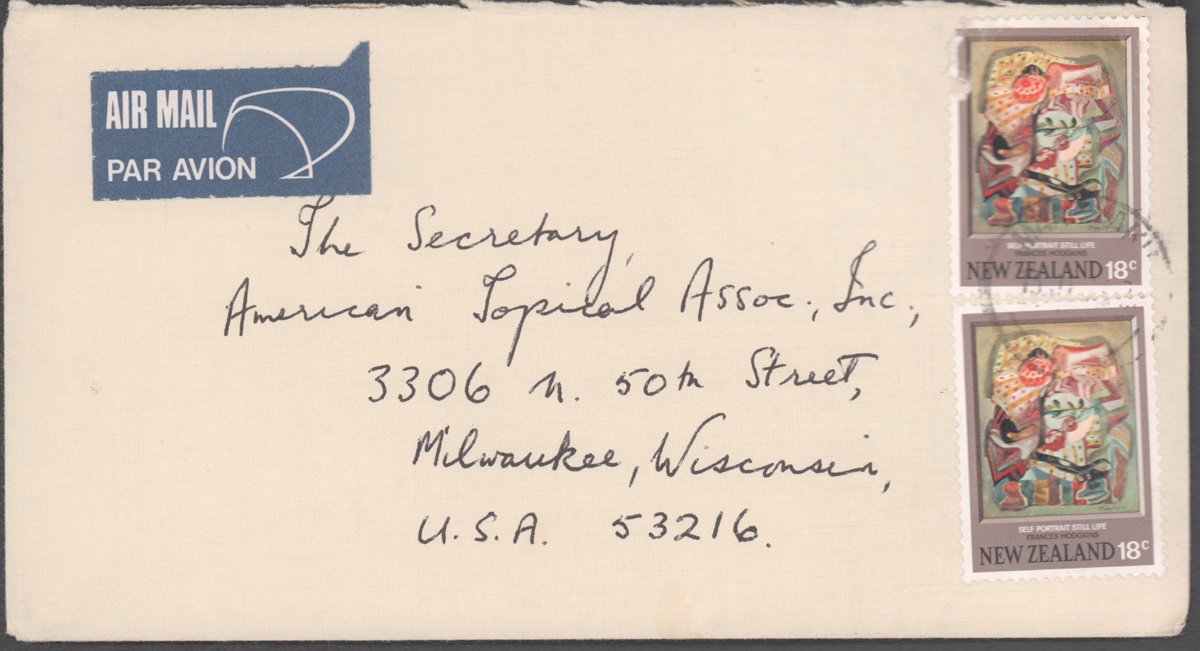 AIR MAIL
PAR AVION
The Secretary,
American Topical Assoc., Inc.,
3306 N. 50th Street,
Milwaukee, Wisconsin,
U.S.A. 53216.
SELF PORTRAIT STILL LIFE
FRANCES HODGKINS
NEW ZEALAND 18c
SELF PORTRAIT STILL LIFE
FRANCES HODGKINS
NEW ZEALAND 18c